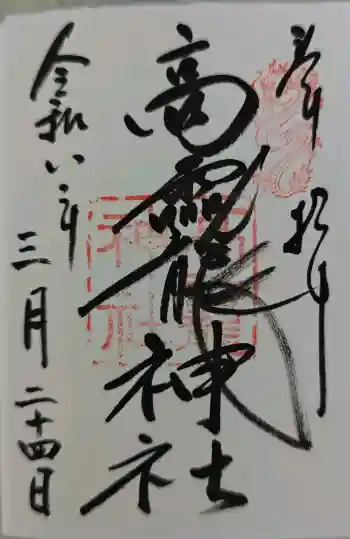 奉拝
高龗神社
令和八年三月二十四日